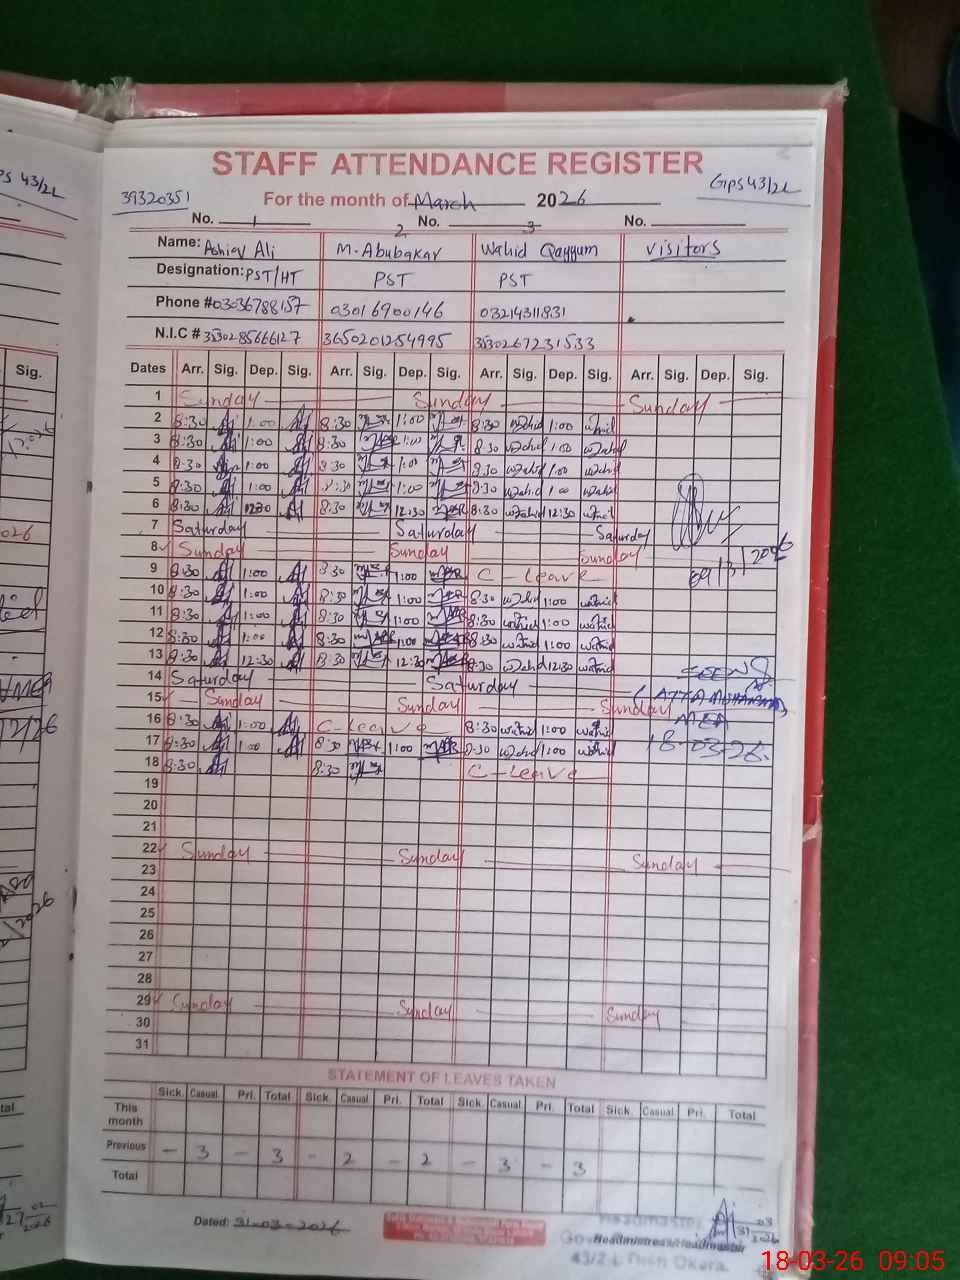 STAFF ATTENDANCE REGISTER
39320351
For the month of March 2026
GPS 43/2L
No. 1 No. 2 No. 3 No.
Name: Ashiq Ali M. Abubakar Wahid Qayyum Visitors
Designation: PST/HT PST PST
Phone # 03036788157 03016900146 03214311831
N.I.C # 3530285666127 3650201254995 3530267231533
Dates Arr. Sig. Dep. Sig. Arr. Sig. Dep. Sig. Arr. Sig. Dep. Sig. Arr. Sig. Dep. Sig.
1 Sunday Sunday Sunday
2 8:30 1:00 8:30 1:00 8:30 wahid 1:00 wahid
3 8:30 1:00 8:30 1:00 8:30 wahid 1:00 wahid
4 8:30 1:00 8:30 1:00 8:30 wahid 1:00 wahid
5 8:30 1:00 8:30 1:00 8:30 wahid 1:00 wahid
6 8:30 12:30 8:30 12:30 8:30 wahid 12:30 wahid
7 Saturday Saturday Saturday
8 Sunday Sunday Sunday
9 8:30 1:00 8:30 1:00 C-Leave
09/3/2026
10 8:30 1:00 8:30 1:00 8:30 wahid 1:00 wahid
11 8:30 1:00 8:30 1:00 8:30 wahid 1:00 wahid
12 8:30 1:00 8:30 1:00 8:30 wahid 1:00 wahid
13 8:30 12:30 8:30 12:30 8:30 wahid 12:30 wahid
14 Saturday Saturday SEEN
15 Sunday Sunday Sunday
16 8:30 1:00 C-Leave 8:30 wahid 1:00 wahid MEA
17 8:30 1:00 8:30 1:00 8:30 wahid 1:00 wahid 18-03-26.
18 8:30 8:30 C-Leave
19
20
21
22 Sunday Sunday Sunday
23
24
25
26
27
28
29 Sunday Sunday Sunday
30
31
STATEMENT OF LEAVES TAKEN
Sick. Casual. Pri. Total Sick. Casual. Pri. Total Sick. Casual. Pri. Total Sick. Casual. Pri. Total
This month
Previous - 3 - 3 - 2 - 2 - 3 - 3
Total
Dated: 31-03-2026
Headmaster
Headmistress/Headmaster
31/03/2026
43/2-L Okara.
18-03-26 09:05